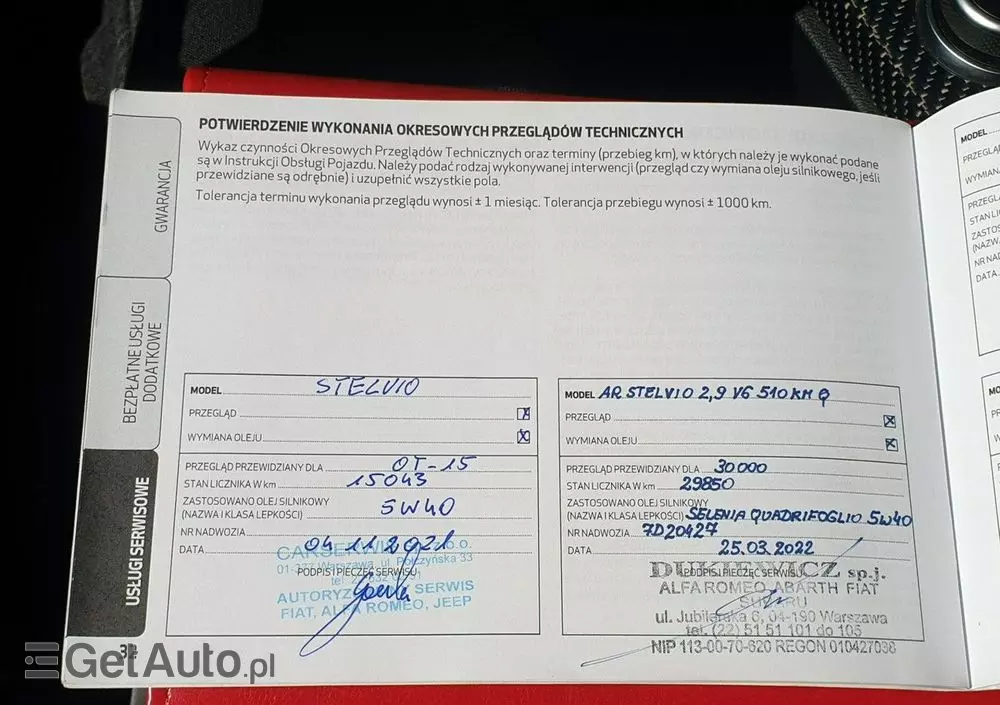 POTWIERDZENIE WYKONANIA OKRESOWYCH PRZEGLĄDÓW TECHNICZNYCH
Wykaz czynności Okresowych Przeglądów Technicznych oraz terminy (przebieg km), w których należy je wykonać podane
są w Instrukcji Obsługi Pojazdu. Należy podać rodzaj wykonywanej interwencji (przegląd czy wymiana oleju silnikowego, jeśli
przewidziane są odrębnie) i uzupełnić wszystkie pola.
Tolerancja terminu wykonania przeglądu wynosi ± 1 miesiąc. Tolerancja przebiegu wynosi ± 1000 km.
GWARANCJA
BEZPŁATNE USŁUGI
DODATKOWE
USŁUGI SERWISOWE
32
MODEL STELVIO
PRZEGLĄD
WYMIANA OLEJU
PRZEGLĄD PRZEWIDZIANY DLA OT-15
STAN LICZNIKA W km 15043
ZASTOSOWANO OLEJ SILNIKOWY
(NAZWA I KLASA LEPKOŚCI) 5W40
NR NADWOZIA
DATA 04 11 2021
PODPIS I PIECZĘĆ SERWISU
01-377 Warszawa, ul. Połczyńska 33
AUTORYZ SERWIS
FIAT, ALFA ROMEO, JEEP
MODEL AR STELVIO 2,9 V6 510 KM Q
PRZEGLĄD
WYMIANA OLEJU
PRZEGLĄD PRZEWIDZIANY DLA 30000
STAN LICZNIKA W km 29850
ZASTOSOWANO OLEJ SILNIKOWY
(NAZWA I KLASA LEPKOŚCI) SELENIA QUADRIFOGLIO 5W40
NR NADWOZIA 7D20427
DATA 25.03.2022
PODPIS I PIECZĘĆ SERWISU
DUKIEWICZ sp.j.
ALFA ROMEO ABARTH FIAT
SUBARU
ul. Jubilerska 6, 04-190 Warszawa
tel. (22) 51 51 101 do 105
NIP 113-00-70-620 REGON 010427036
MODEL
WYMIANA
STAN LI
(NAZW
NR NAD
DATA
GetAuto.pl